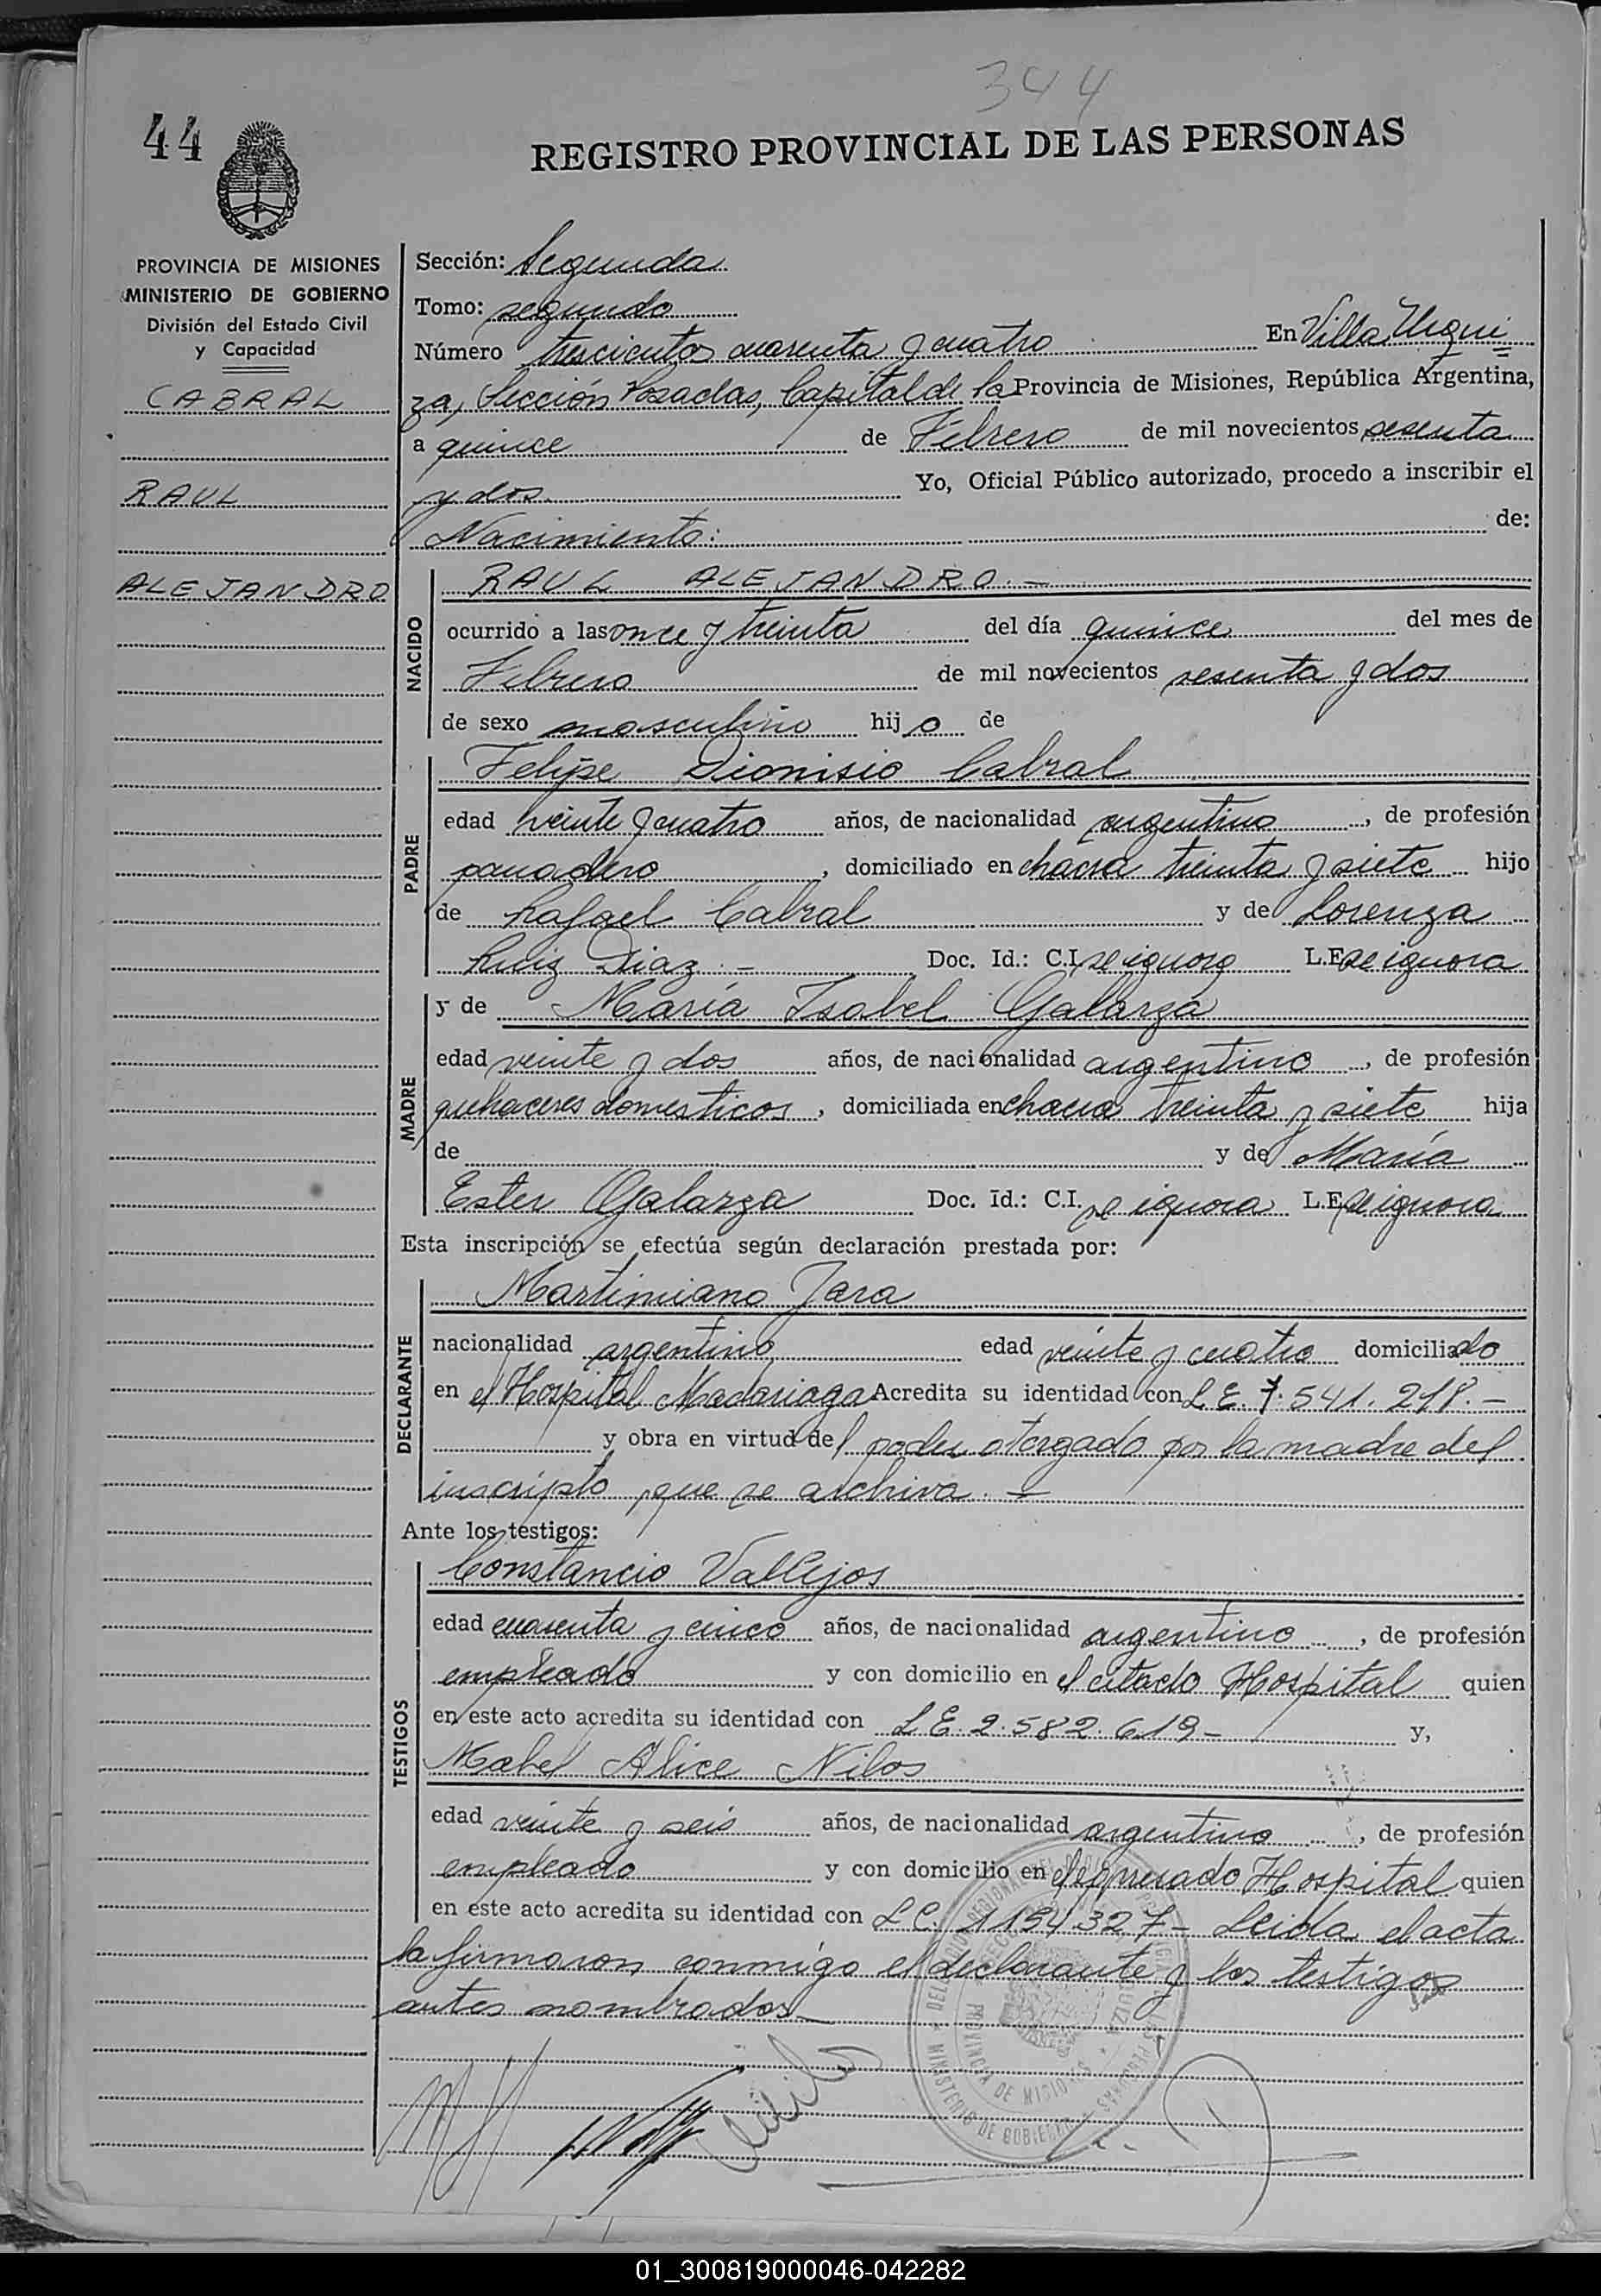 344
44
REGISTRO PROVINCIAL DE LAS PERSONAS
PROVINCIA DE MISIONES
MINISTERIO DE GOBIERNO
División del Estado Civil
y Capacidad
CABRAL
RAUL
ALEJANDRO
Sección: Segunda
Tomo: segundo
Número trescientos cuarenta y cuatro En Villa Urqui
za, Sección Posadas, Capital de la Provincia de Misiones, República Argentina,
a quince de Febrero de mil novecientos sesenta
y dos Yo, Oficial Público autorizado, procedo a inscribir el
Nacimiento: de:
NACIDO
RAUL ALEJANDRO.—
ocurrido a las once y treinta del día quince del mes de
Febrero de mil novecientos sesenta y dos
de sexo masculino hijo de
PADRE
Felipe Dionisio Cabral
edad veinte y cuatro años, de nacionalidad argentino, de profesión
panadero, domiciliado en chacra treinta y siete hijo
de Rafael Cabral y de Lorenza
Ruiz Diaz.— Doc. Id.: C.I. se ignora L.E. se ignora
MADRE
y de María Isabel Galarza
edad veinte y dos años, de nacionalidad argentino, de profesión
quehaceres domesticos, domiciliada en chacra treinta y siete hija
de y de María
Ester Galarza Doc. Id.: C.I. se ignora L.E. se ignora
Esta inscripción se efectúa según declaración prestada por:
DECLARANTE
Martimiano Jara
nacionalidad argentino edad veinte y cuatro domiciliado
en el Hospital Madariaga Acredita su identidad con L.E. 7.541.218.—
y obra en virtud del poder otorgado por la madre del
inscripto, que se archiva.—
Ante los testigos:
TESTIGOS
Constancio Vallejos
edad cuarenta y cinco años, de nacionalidad argentino, de profesión
empleado y con domicilio en el citado Hospital quien
en este acto acredita su identidad con L.E. 2.582.619- y,
Mabel Alice Nilos
edad veinte y seis años, de nacionalidad argentina, de profesión
empleado y con domicilio en el quien
en este acto acredita su identidad con L.C. 1154327- Leida el acta
la firmaron conmigo el declarante y los testigos
antes nombrados
MINISTERIO DE GOBIERNO
PROVINCIA DE MISIONES
01_300819000046-042282